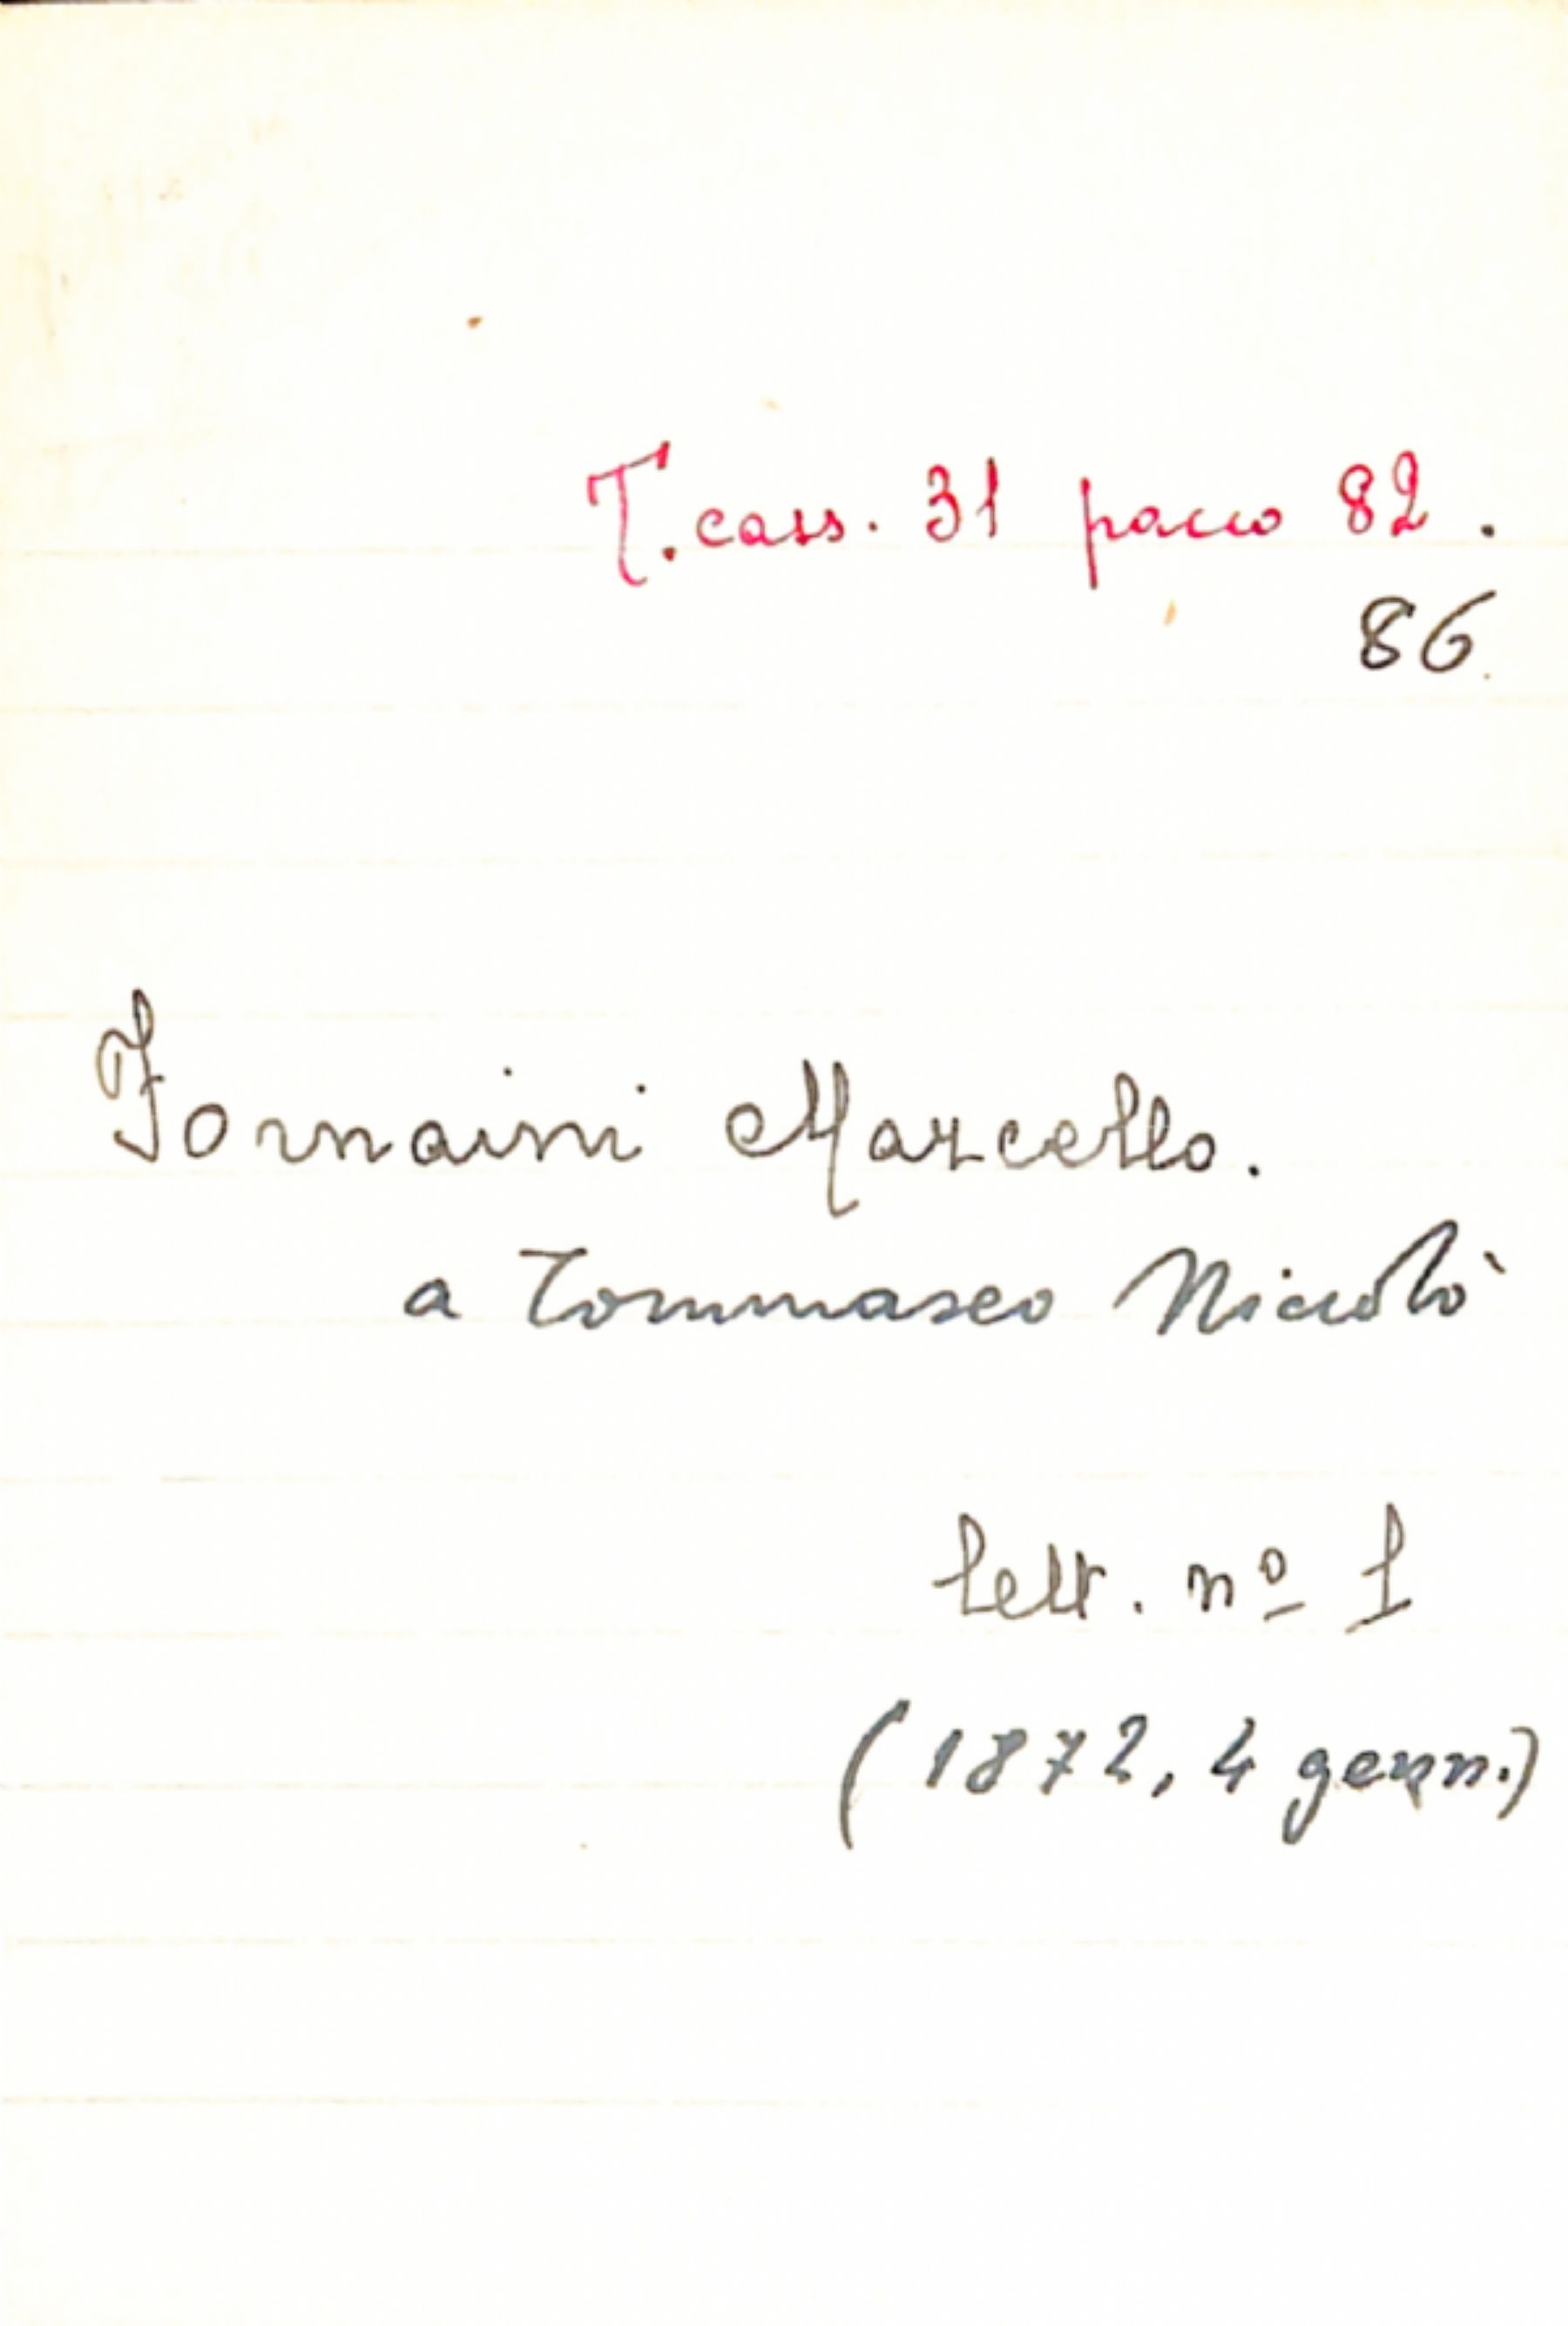 T. cass. 31 pacco 82.
86.
Fornaini Marcello.
a Tommaseo Niccolò
lett. nº 1
(1872, 4 genn.)